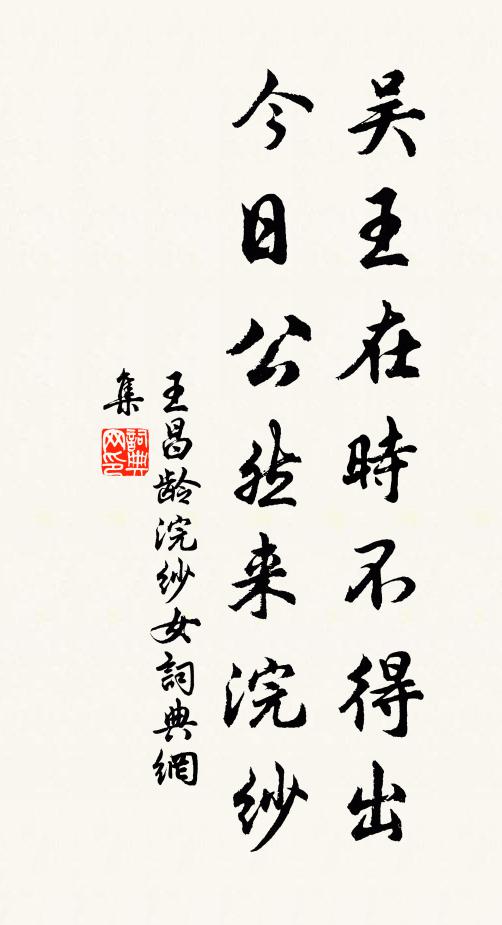 吴王在時不得出
今日公然来浣紗
王昌龄浣紗女詞典網
集
詞典
网印